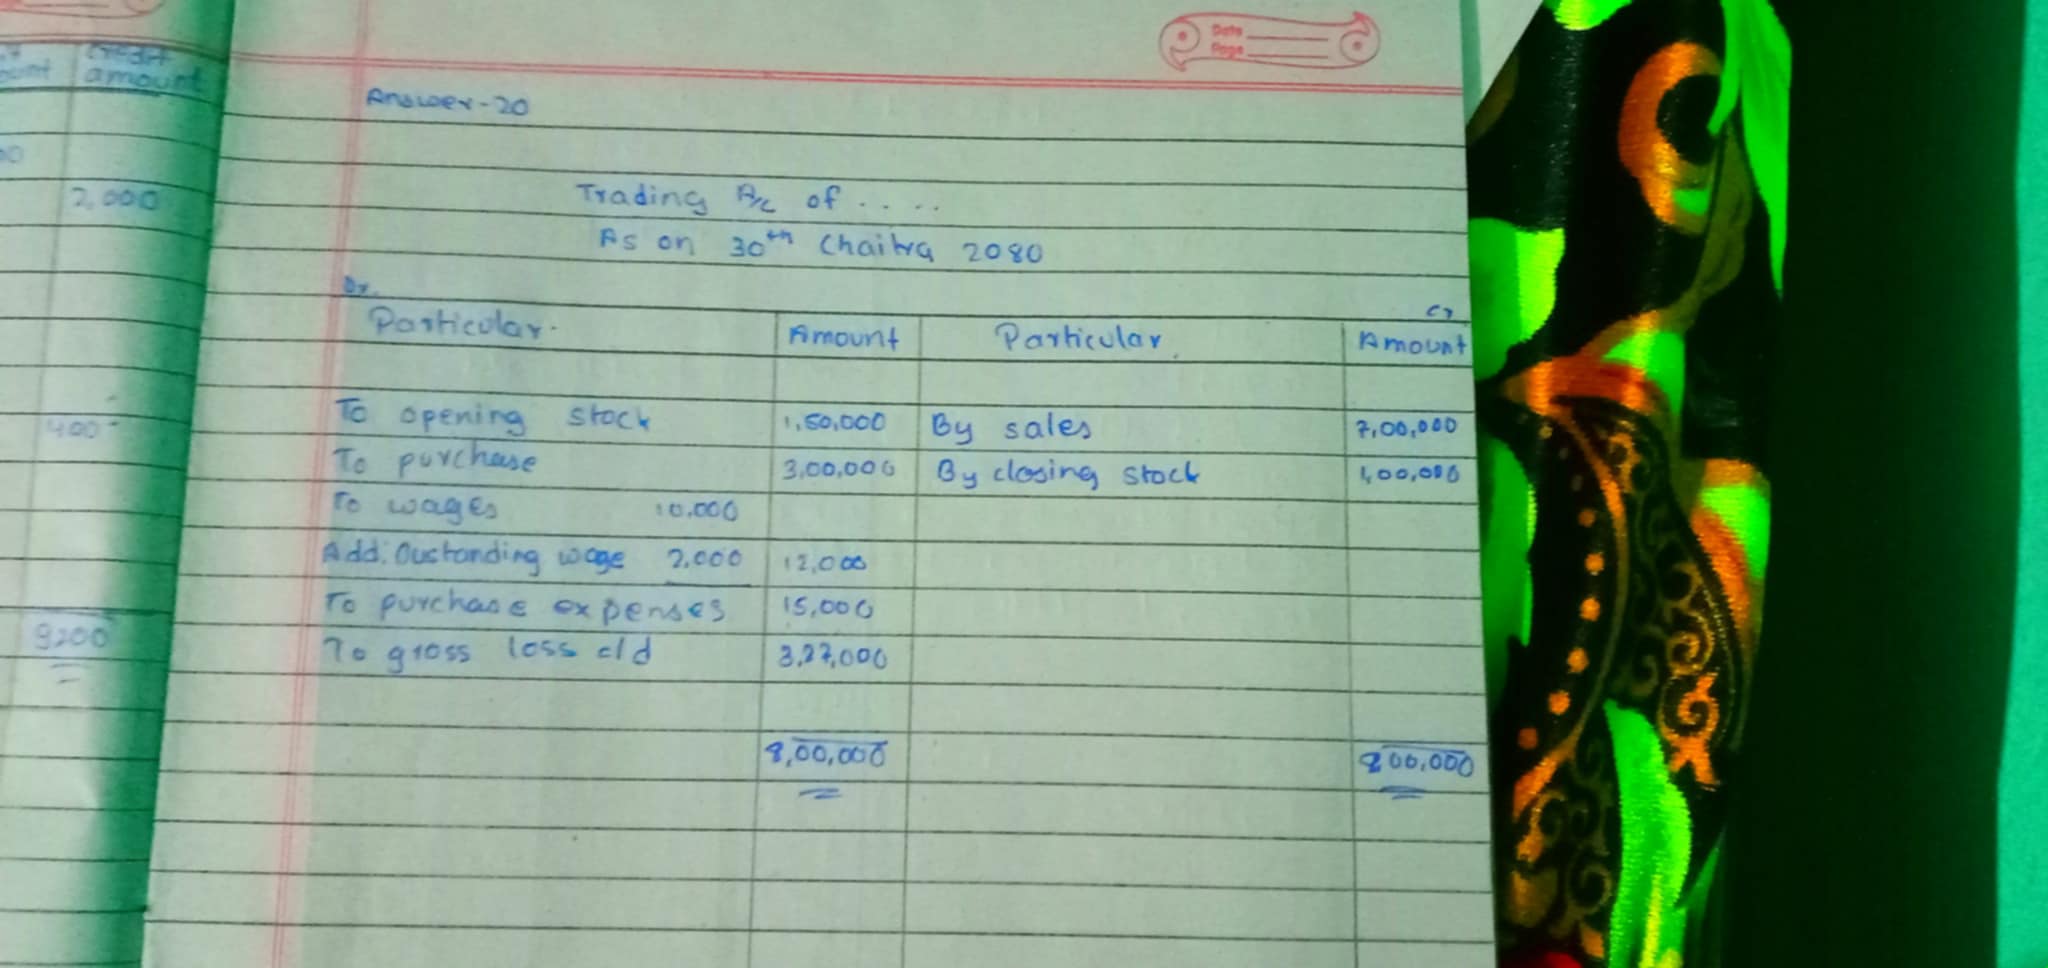 Credit
amount
2,000
400
9200
Date
Page
Answer-20
Trading A/c of .....
As on 30th Chaitra 2080
Dr. Cr
Particular. Amount Particular Amount
To opening stock 1,50,000 By sales 7,00,000
To purchase 3,00,000 By closing stock 1,00,000
To wages 10,000
Add: Oustanding wage 2,000 12,000
To purchase expenses 15,000
To gross loss c/d 3,27,000
8,00,000 800,000